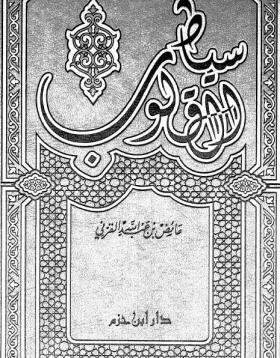 سياط القلوب
عائض بن عبد الله القرني
دار ابن حزم